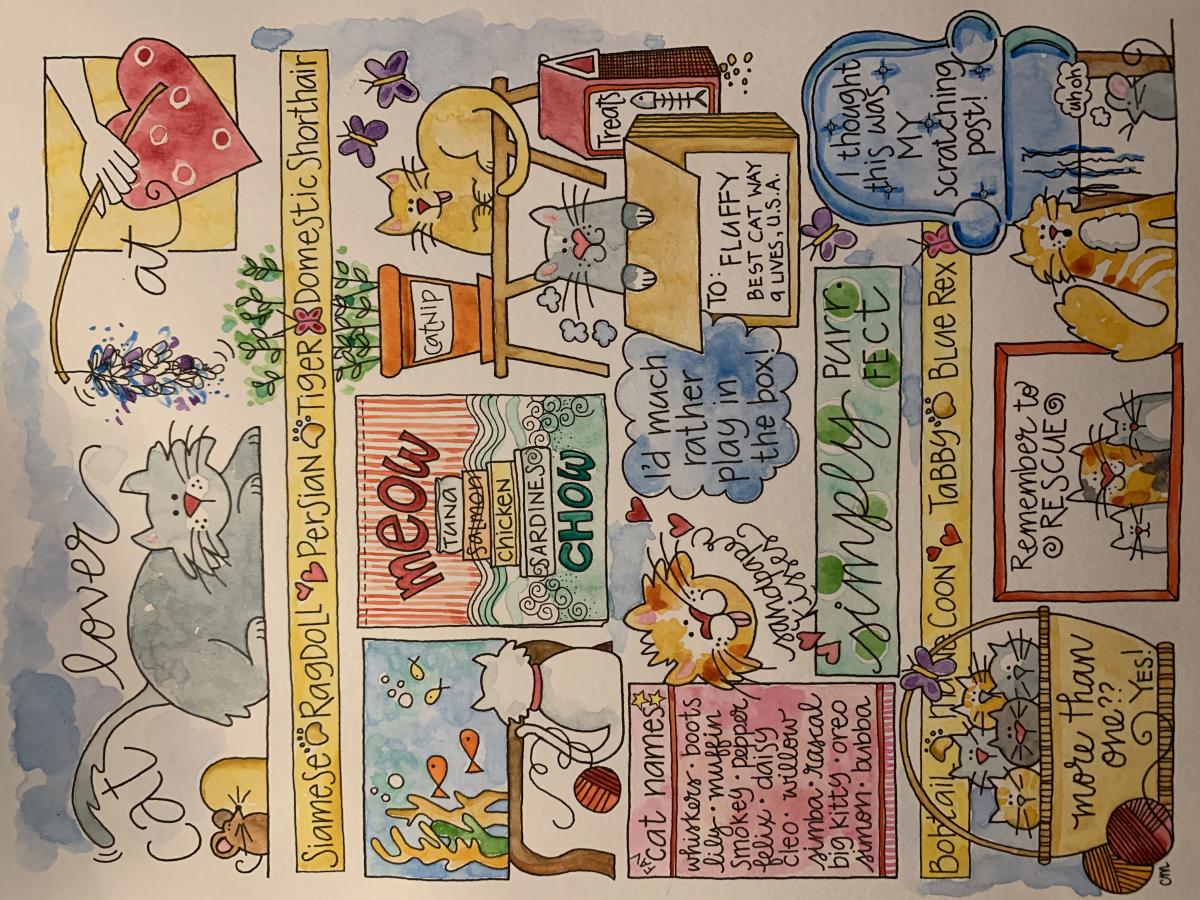 cat lover at
Siamese Ragdoll Persian Tiger Domestic Shorthair
MEOW
TUNA
salmon
chicken
SARDINES
CHOW
catnip
Treats
cat names
whiskers · boots
lily · muffin
smokey · pepper
felix · daisy
cleo · willow
simba · rascal
big kitty · oreo
simon · bubba
sandpaper
kisses
I'd much
rather
play in
the box!
TO:
FLUFFY
BEST CAT WAY
9 LIVES, U.S.A.
simply purr
FECT
I thought
this was
MY
scratching
post!
uh oh
Bobtail Coon Tabby Blue Rex
more than
one??
YES!
Remember to
RESCUE
cm